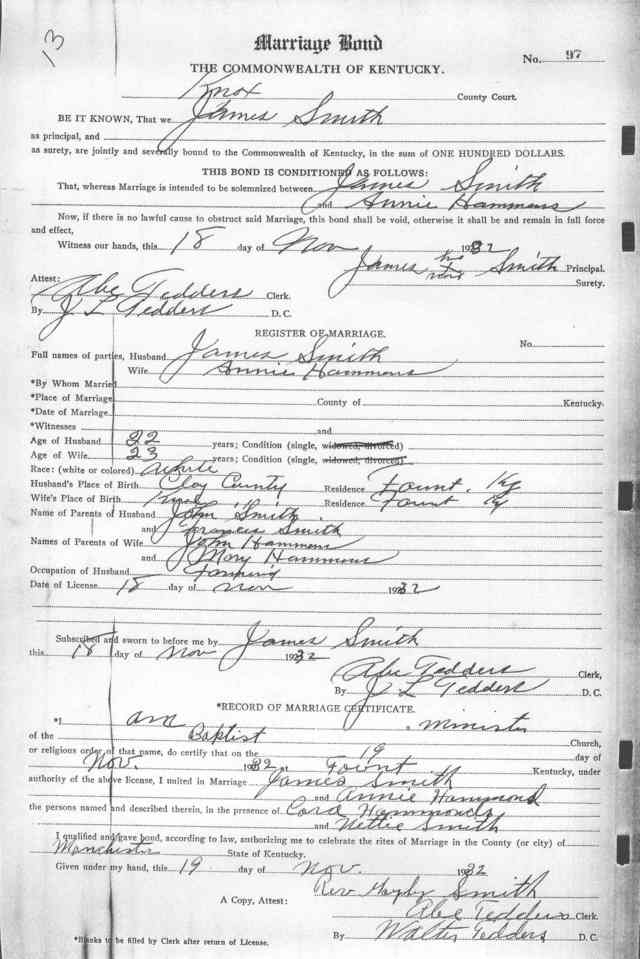 13
Marriage Bond
No. 97
THE COMMONWEALTH OF KENTUCKY.
Knox County Court.
BE IT KNOWN, That we James Smith
as principal, and
as surety, are jointly and severally bound to the Commonwealth of Kentucky, in the sum of ONE HUNDRED DOLLARS.
THIS BOND IS CONDITIONED AS FOLLOWS:
That, whereas Marriage is intended to be solemnized between James Smith
and Annie Hammons
Now, if there is no lawful cause to obstruct said Marriage, this bond shall be void, otherwise it shall be and remain in full force
and effect,
Witness our hands, this 18 day of Nov 1932
James his mark Smith Principal.
Surety.
Attest:
Abe Tedders Clerk.
By J L Tedders D. C.
REGISTER OF MARRIAGE.
No.
Full names of parties, Husband James Smith
Wife Annie Hammons
*By Whom Married
*Place of Marriage County of Kentucky.
*Date of Marriage
*Witnesses and
Age of Husband 22 years; Condition (single, widowed, divorced)
Age of Wife 23 years; Condition (single, widowed, divorced)
Race: (white or colored) White
Husband's Place of Birth Clay County Residence Fount, Ky
Wife's Place of Birth Knox Residence Fount Ky
Name of Parents of Husband John Smith
and Francis Smith
Names of Parents of Wife John Hammons
and Mary Hammons
Occupation of Husband Farming
Date of License 18 day of Nov 1932
Subscribed and sworn to before me by James Smith
this 18 day of Nov 1932
Abe Tedders Clerk,
By J L Tedders D. C.
*RECORD OF MARRIAGE CERTIFICATE.
*I am minister
of the Baptist Church,
or religious order of that name, do certify that on the 19 day of
Nov. 1932 at Fount Kentucky, under
authority of the above license, I united in Marriage James Smith
and Annie Hammond
the persons named and described therein, in the presence of Hammonds
and Nettie Smith
I qualified and gave bond, according to law, authorizing me to celebrate the rites of Marriage in the County (or city) of
Manchester State of Kentucky.
Given under my hand, this 19 day of Nov. 1932
Rev Smith
A Copy, Attest:
Abe Tedders Clerk.
By Walter Tedders D. C.
*Blanks to be filled by Clerk after return of License.